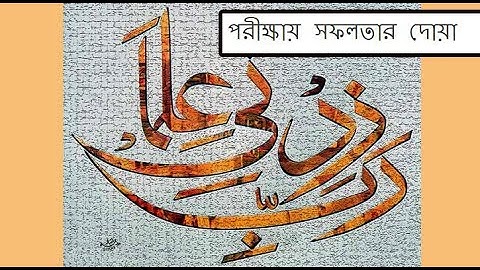 পরীক্ষায় সফলতার দোয়া
رَبِّ زِدْنِي عِلْمًا